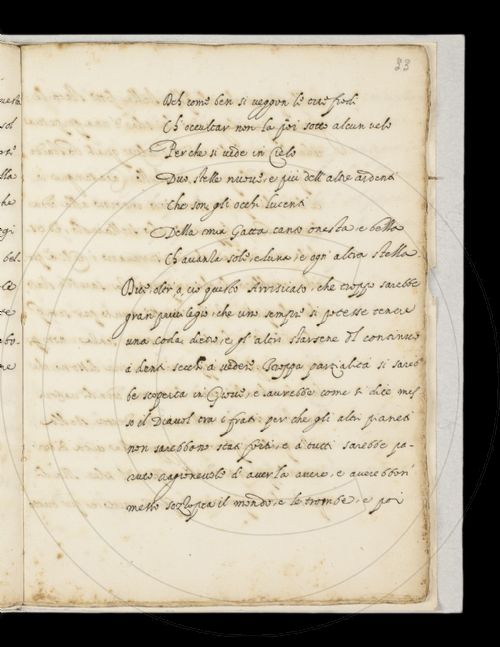 33
Deh come ben si veggon le tue frodi
Ch occultar non la poi sotto alcun velo
Perche si vede in Cielo
Due stelle nuove, e più dell'altre ardenti
Che son gli occhi lucenti
Della mia Gatta tanto onesta e bella
Ch'avanza sole, e luna, e ogn'altra stella
Dice oltr'a ciò questo Arrisicato, che troppo sarebbe
gran privilegio, che uno sempre si potesse tenere
una coda dietro, e gl'altri starsene continuo
a denti secchi a vedere. Troppa parzialità si sareb
be scoperta in Giove, e avrebbe come si dice mes
so il Diavol tra i frati: perche gli altri pianeti
non sarebbono stati forti, e a tutti sarebbe pa-
ruto ragionevole d'averla avere, e averebbon
messo sozzopra il mondo, e le trombe, e poi
uesta
sol
lla
he
egi
bel.
te
re